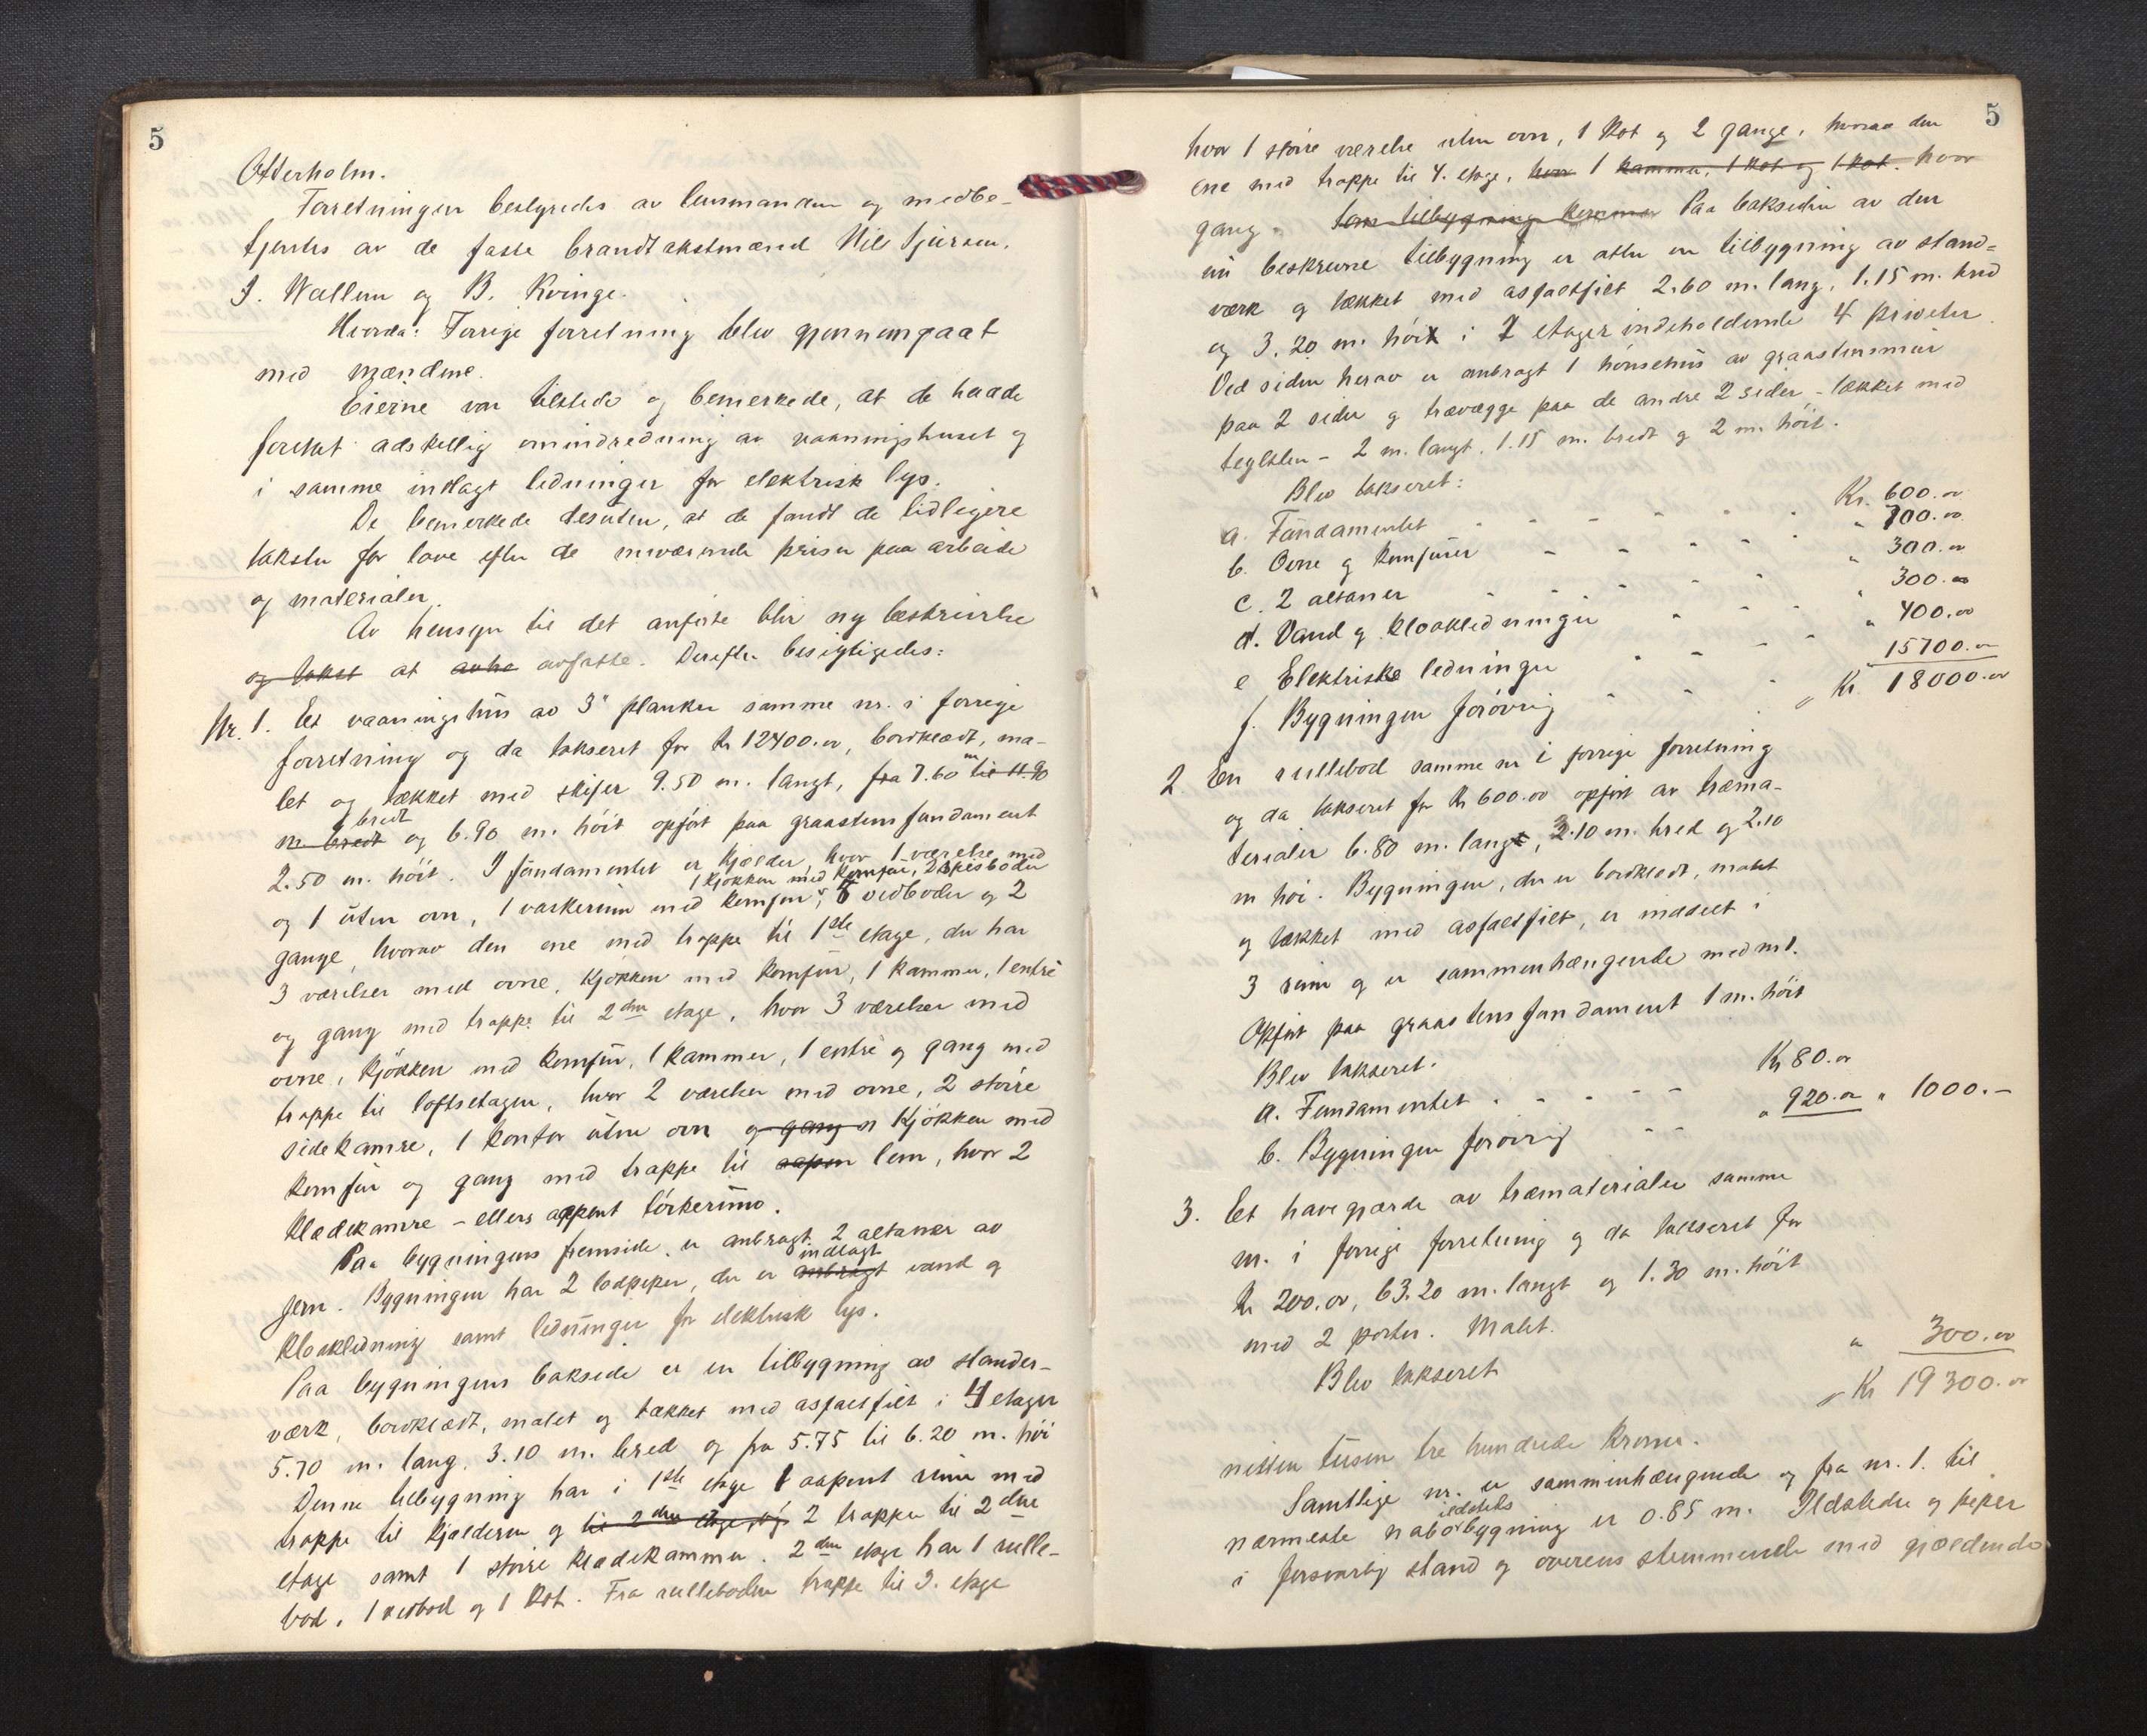 5
Otterholm.
Forretningen bestyredes av lensmanden og medbe-
tjentes av de faste brandtakstmænd Nils Sjursen,
J. Wallem og B. Kvinge.
Hvorda: Forrige forretning blev gjennemgaat
med mændene.
Eierne var tilstede og bemerkede, at de havde
foretat adskellig omindredning av vaaningshuset og
i samme indlagt ledninger for elektrisk lys.
De bemerkede desuten, at de fandt de tidligere
takster for lave efter de nuværende priser paa arbeide
og materialer.
Av hensyn til det anførte blir ny beskrivelse
og takst at avhe avfatte. Derefter besigtigedes:
Nr. 1. Et vaaningshus av 3" planker samme nr. i forrige
forretning og da takseret for kr 12400.00, bordklædt, ma-
let og tækket med skifer 9.50 m. langt, fra 7.60 m til 11.90
m. bredt bredt og 6.90 m. høit opført paa graastensfundament
2.50 m. høit. I fundamentet er kjælder, hvor 1 værelse med
og 1 uten ovn, 1 vaskerum med komfur, 1 kjøkken med komfur, 2 spisboder 4 vedboder og 2
gange, hvorav den ene med trappe til 1ste etage, der har
3 værelser med ovne, kjøkken med komfur, 1 kammer, 1 entré
og gang med trappe til 2den etage, hvor 3 værelser med
ovne, kjøkken med komfur, 1 kammer, 1 entré og gang med
trappe til loftsetagen, hvor 2 værelser med ovne, 2 større
sidekamre, 1 kontor uten ovn og gang n kjøkken med
komfur og gang med trappe til aapen lem, hvor 2
klædekamre - ellers aapent tørkerum.
Paa bygningens fremside er anbragt 2 altaner av
jern. Bygningen har 2 lodpiper, der er anbragt indlagt vand og
kloakledning samt ledninger for elektrisk lys.
Paa bygningens bakside er en tilbygning av stander-
værk, bordklædt, malet og tækket med asfaltfilt i 4 etager
5.70 m. lang, 3.10 m. bred og fra 5.75 til 6.20 m. høi
Denne tilbygning har i 1ste etage 1 aapent rum med
trappe til kjælderen og til 2den etage og 2 trapper til 2den
etage samt 1 større klædekammer. 2den etage har 1 rulle-
bod, 1 vedbod og 1 kot. Fra rulleboden trappe til 3. etage
5
hvor 1 større værelse uten ovn, 1 kot og 2 gange, hvorav den
ene med trappe til 4. etage, hvor 1 kammer, 1 kot og 1 kot. hvor
gang. Som tilbygning kommer Paa baksiden av den
nu beskrevne tilbygning er atter en tilbygning av stand-
værk og tækket med asfaltfilt 2.60 m. lang, 1.15 m. bred
og 3.20 m. høi i 2 etager indeholdende 4 priveter.
Ved siden herav er anbragt 1 hønsehus av graastensmur
paa 2 sider og trævægge paa de andre 2 sider, - tækket med
teglsten - 2 m. langt, 1.15 m. bredt og 2 m. høit.
Blev takseret:
a. Fundamentet - - - - - Kr. 600.00
b. Ovne og komfurer - - - - - " 700.00
c. 2 altaner - - - - - " 300.00
d. Vand og kloakledninger - - - " 300.00
e Elektriske ledninger - - - - " 400.00
f. Bygningen forøvrig - - - " 15700.00
Kr. 18000.00
2. En rullebod samme nr i forrige forretning
og da takseret for kr 600.00 opført av træma-
terialer 6.80 m. lang, 3.10 m. bred og 2.10
m høi. Bygningen, der er bordklædt, malet
og tækket med asfaltfilt, er inddelt i
3 rum og er sammenhængende med nr 1.
Opført paa graastensfundament 1 m. høit
Blev takseret.
a. Fundamentet - - - - Kr 80.00
b. Bygningen forøvrig - - - " 920.00 " 1000.-
3. Et havegjærde av træmaterialer samme
nr. i forrige forretning og da takseret for
kr 200.00, 63.20 m. langt og 1.30 m. høit
med 2 porter. Malet.
Blev takseret " 300.00
Kr 19300.00
nitten tusen tre hundrede kroner.
Samtlige nr. er sammenhængende og fra nr. 1. til
nærmeste nabo ildsteds bygning er 0.85 m. Ildsteder og piper
i forsvarlig stand og overensstemmende med gjældende